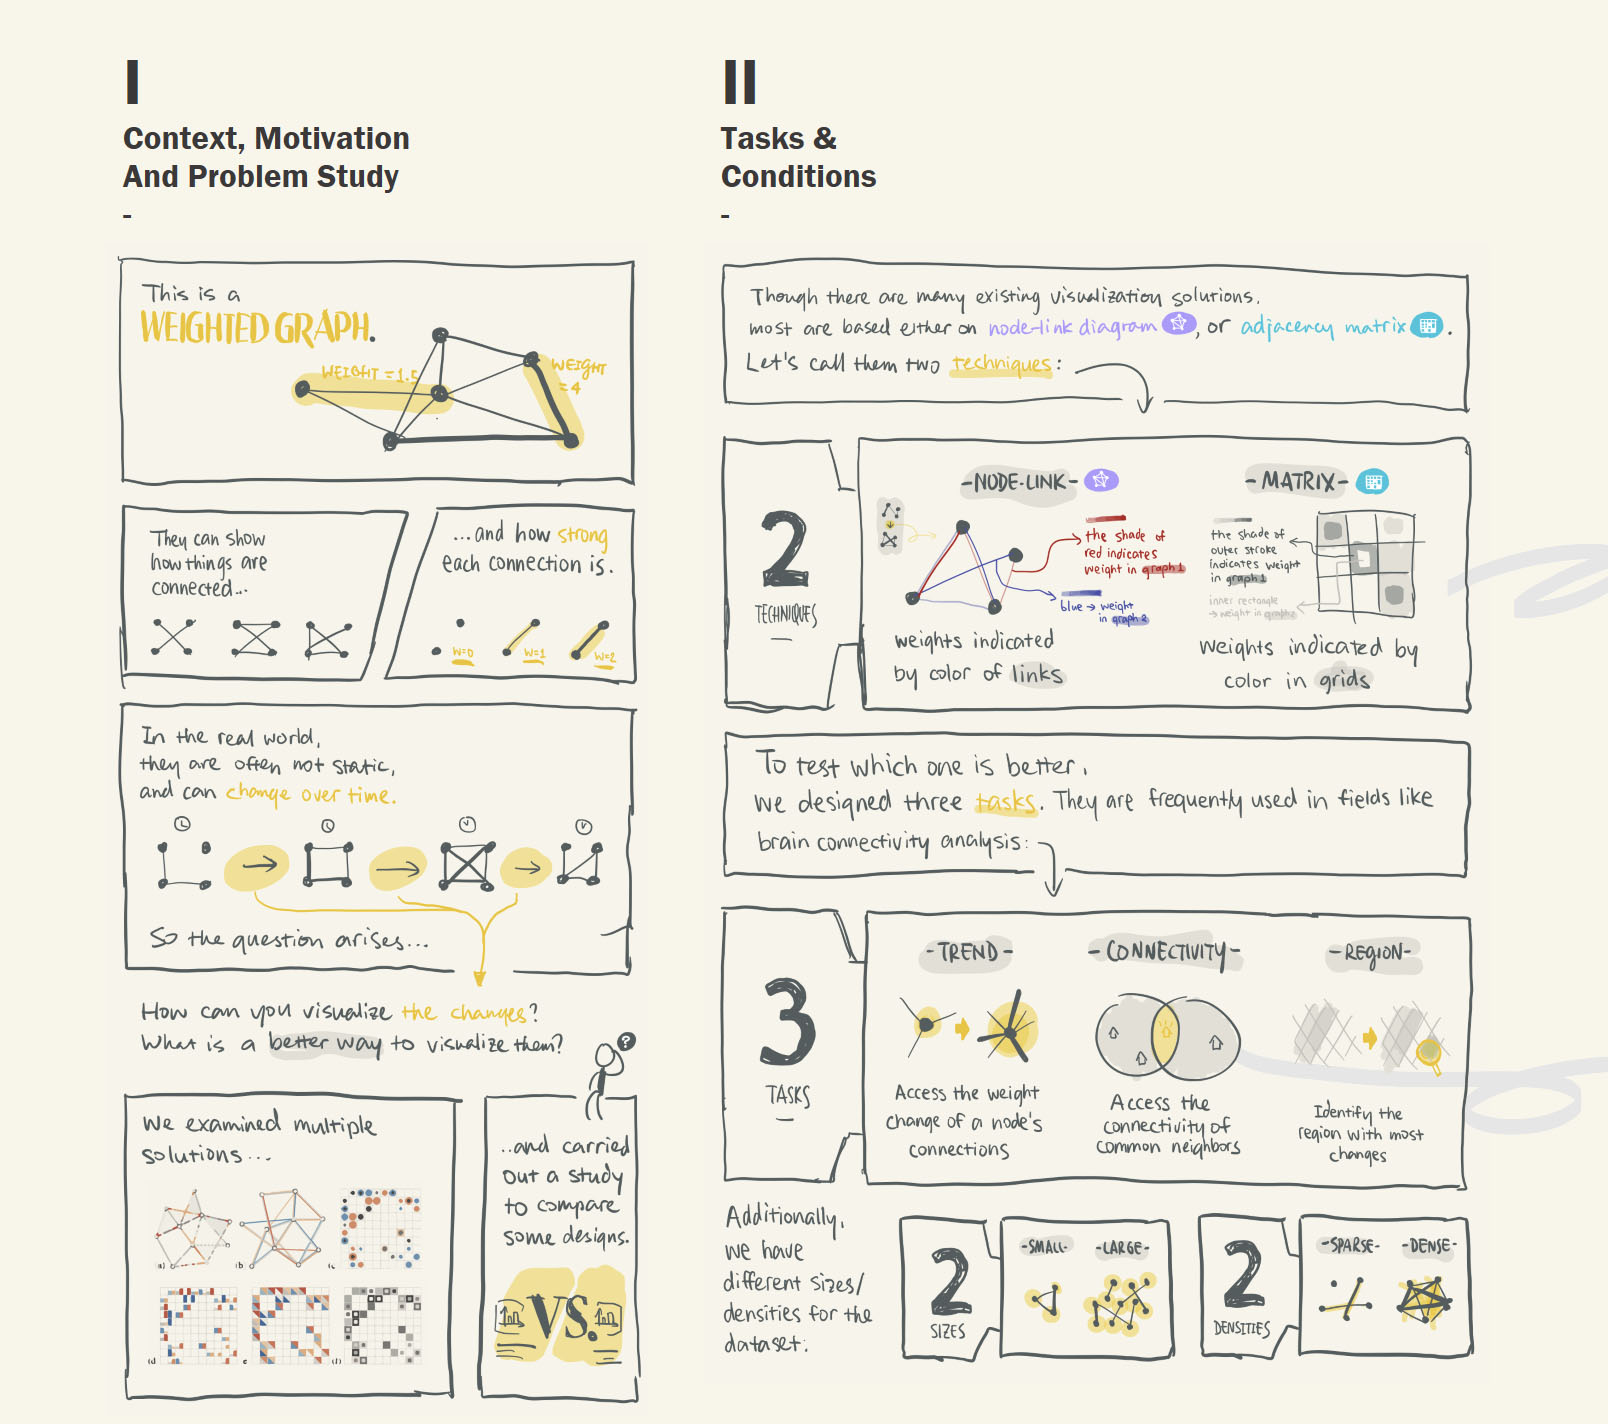 I
Context, Motivation
And Problem Study
-
This is a
WEIGHTED GRAPH.
WEIGHT = 1.5
WEIGHT
= 4
They can show
how things are
connected...
...and how strong
each connection is.
W=0
W=1
W=2
In the real world,
they are often not static,
and can change over time.
So the question arises...
How can you visualize the changes?
What is a better way to visualize them?
?
We examined multiple
solutions...
a)
(b
(c
(d
e
(f)
..and carried
out a study
to compare
some designs.
VS.
II
Tasks &
Conditions
-
Though there are many existing visualization solutions,
most are based either on node-link diagram, or adjacency matrix.
Let's call them two techniques:
2
TECHNIQUES
-NODE-LINK-
the shade of
red indicates
weight in graph 1
blue → weight
in graph 2
weights indicated
by color of links
-MATRIX-
the shade of
outer stroke
indicates weight
in graph 1
inner rectangle
→ weight in graph 2
Weights indicated by
color in grids
To test which one is better,
we designed three tasks. They are frequently used in fields like
brain connectivity analysis:
3
TASKS
-TREND-
Access the weight
change of a node's
connections
-CONNECTIVITY-
Access the
connectivity of
common neighbors
-REGION-
Identify the
region with most
changes
Additionally,
we have
different sizes/
densities for the
dataset:
2
SIZES
-SMALL-
-LARGE-
2
DENSITIES
-SPARSE-
-DENSE-